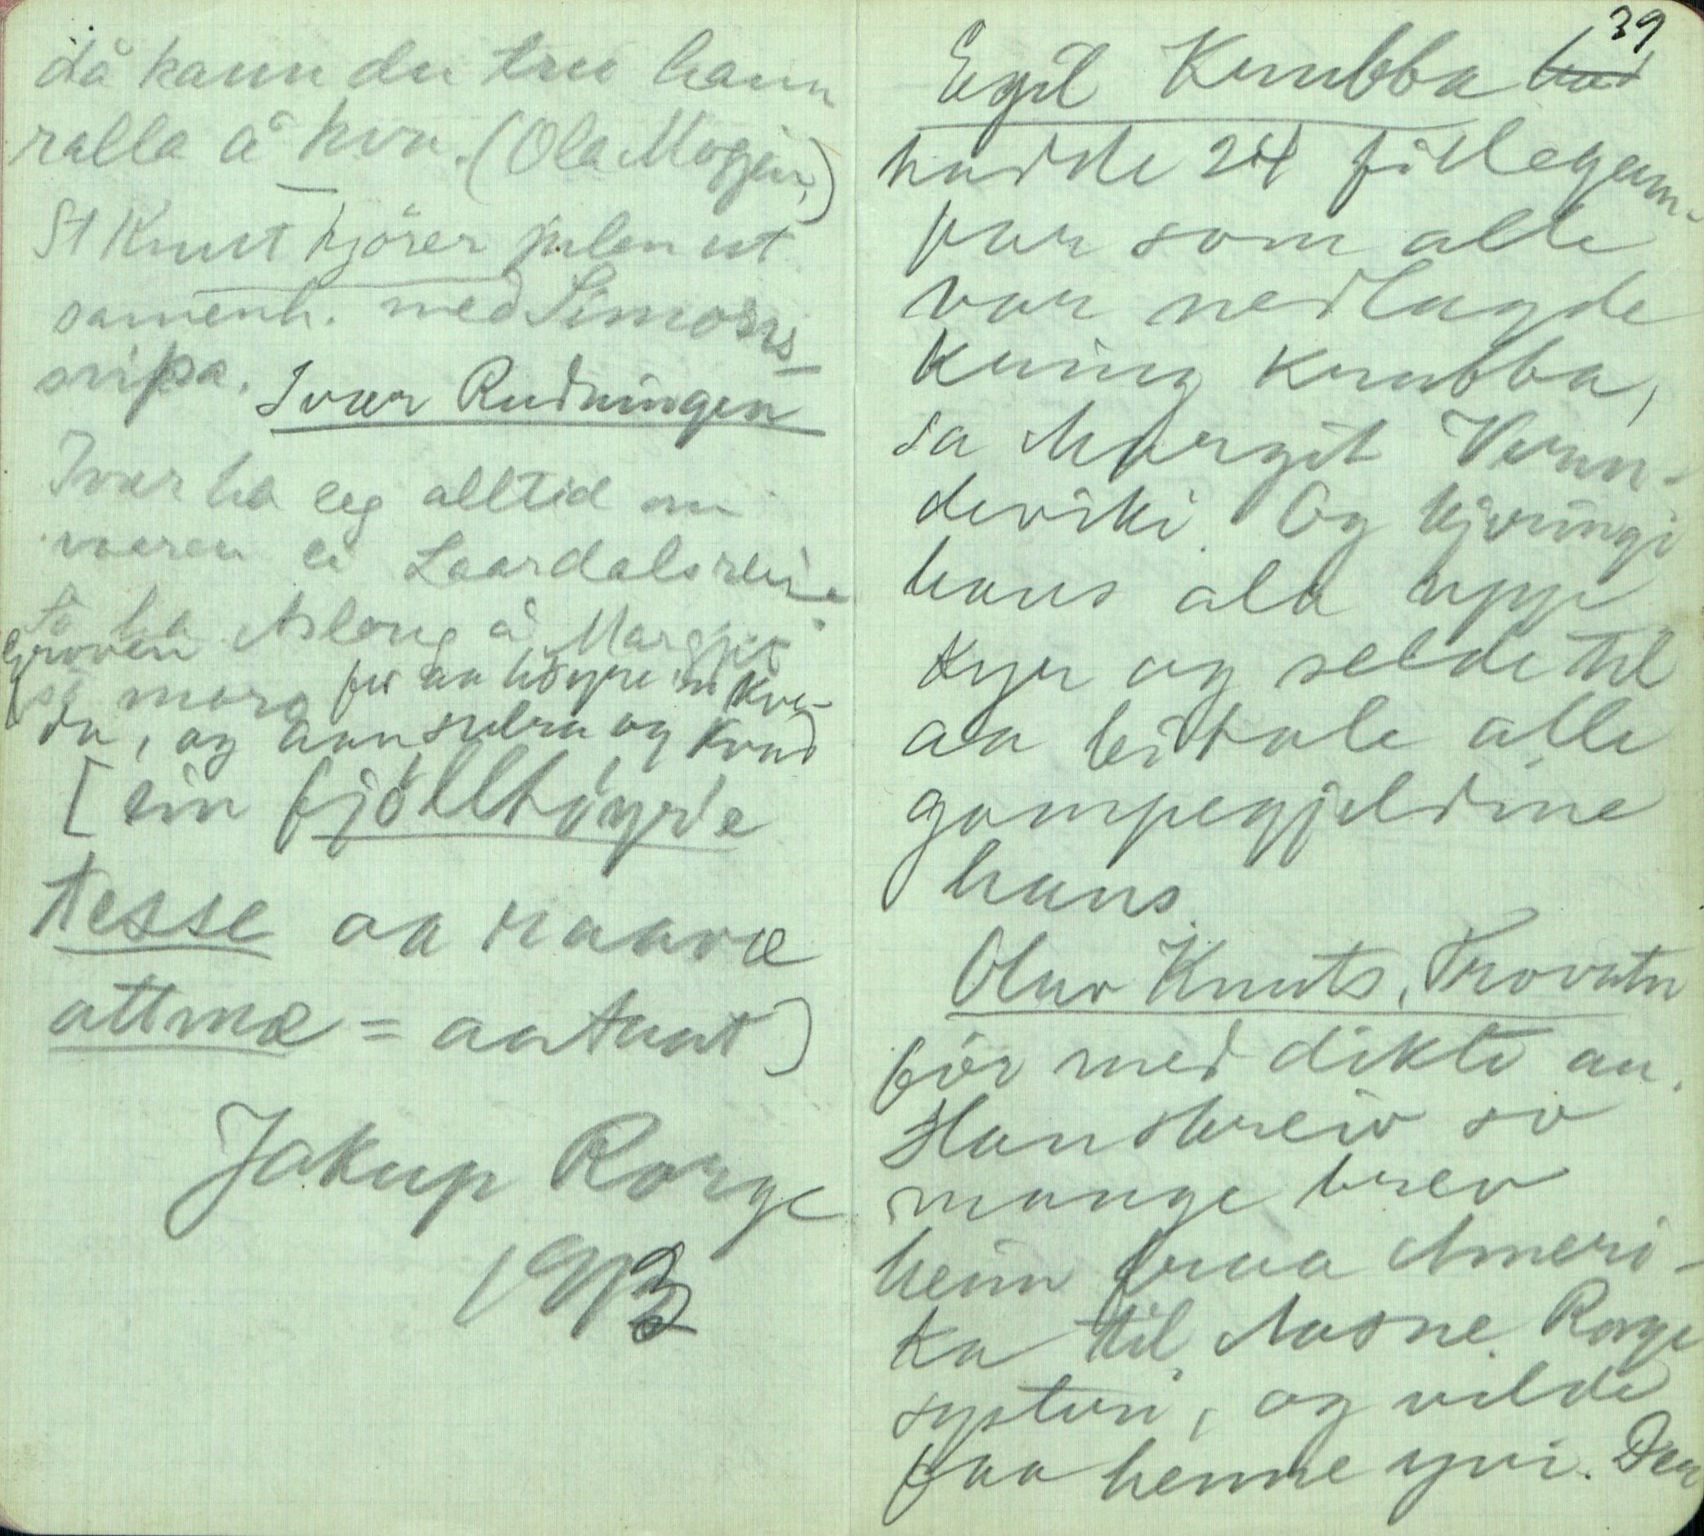 då kann du tru hann
ralla å kvu. (Ola Mogjin,)
St Knut kjörer julen ut
samenh. med Simons-
svipa. Ivar Rudningen
Ivar ha eg alltid um
vaaren ei Laardalsreise
Groven så ha Aslaug å Margjit
sa mora for aa höyre 'n kve-
da, og hun sulra og kvad
[ein fjölltöyrde
tesse aa raava
attmæ = aataat)
Jakup Rorge
1913
39
Egil Knubba had
hadde 24 fillegam-
par som alle
var nedlagde
kring Knubba,
sa Margit Vrun-
deviki. Og kjeringi
hans ala upp
kyr og selde til
aa bitale alle
gampegjeldine
hans.
Olav Knuts. Trovatn
för med dikte an.
Han skreiv so
mange brev
heim fraa Ameri-
ka til Aasne Rorge
systeri, og vilde
faa henne yvi. Den